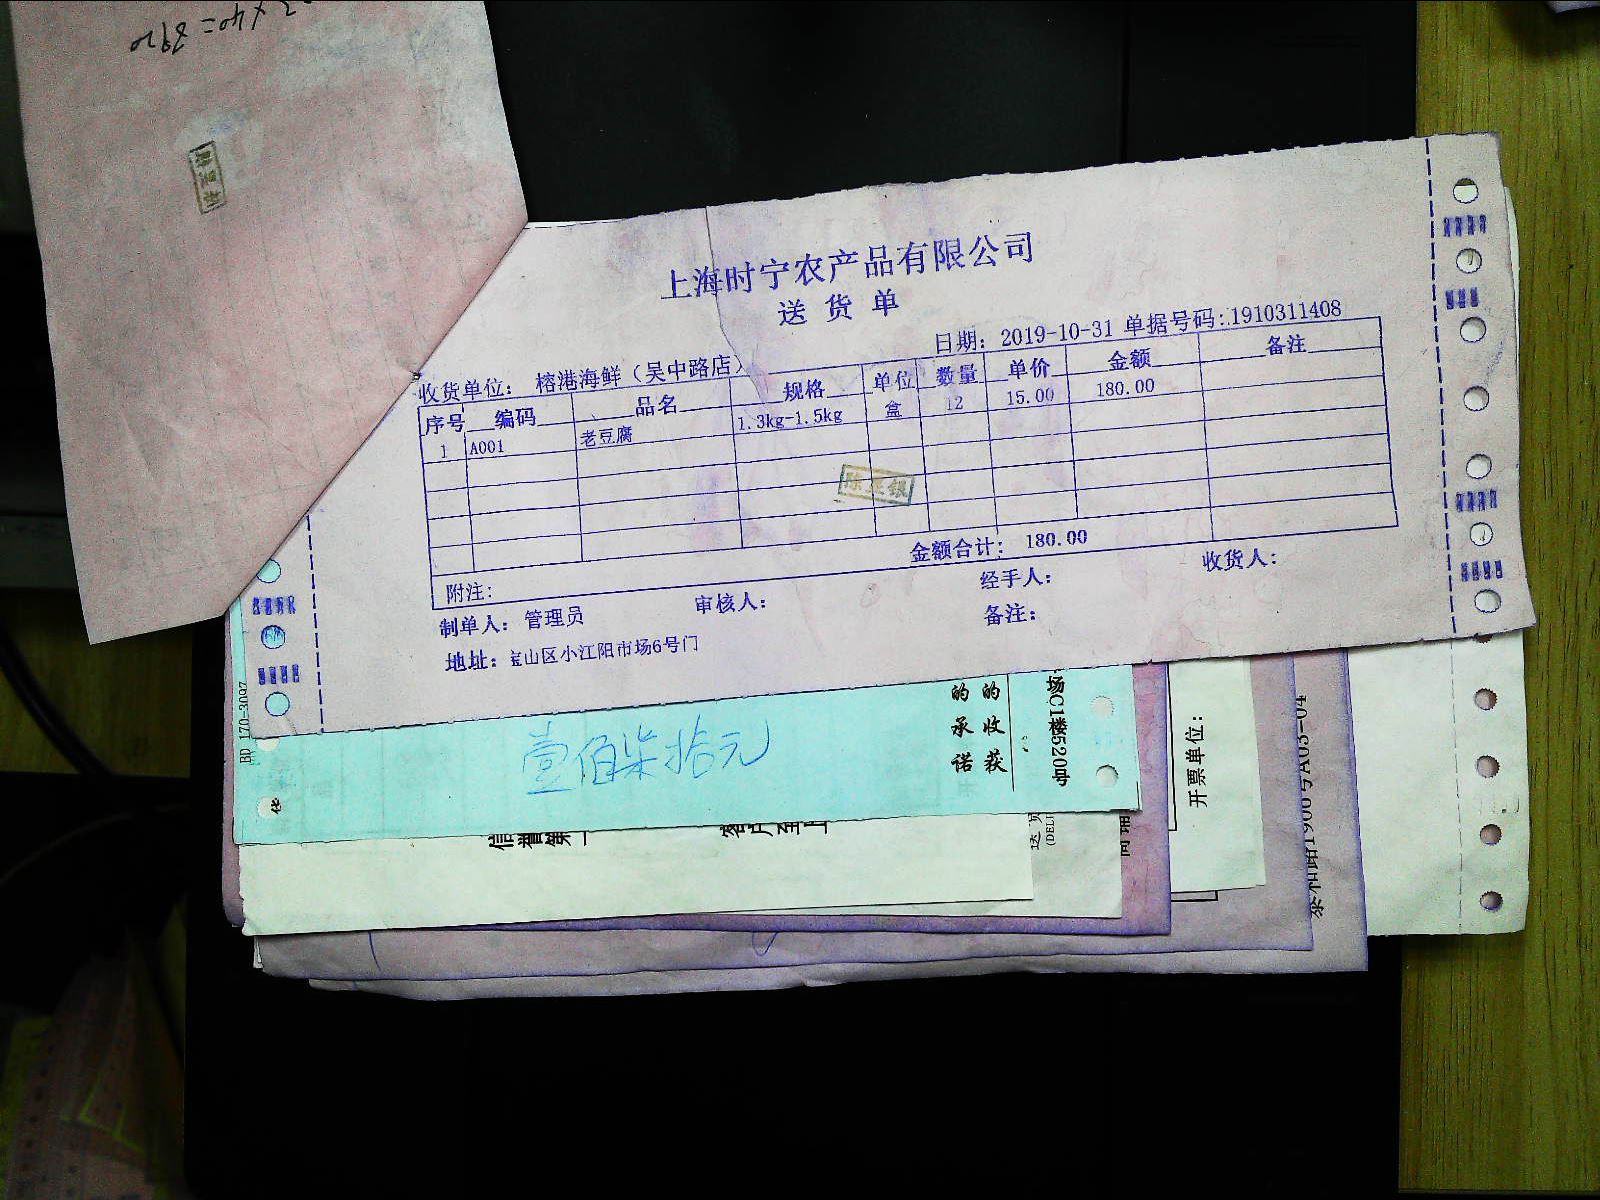 上海时宁农产品有限公司
送货单
日期：2019-10-31 单据号码：1910311408
收货单位：榕港海鲜（吴中路店）
序号 编码 品名 规格 单位 数量 单价 金额 备注
1 A001 老豆腐 1.3kg-1.5kg 盒 12 15.00 180.00
金额合计：180.00
附注：
制单人：管理员 审核人： 经手人： 收货人：
地址：宝山区小江阳市场6号门 备注：
壹佰柒拾元
的 的
承 收
诺 获
场C1楼520号
BD 170-3097
开票单位：
信誉第一
客户至上